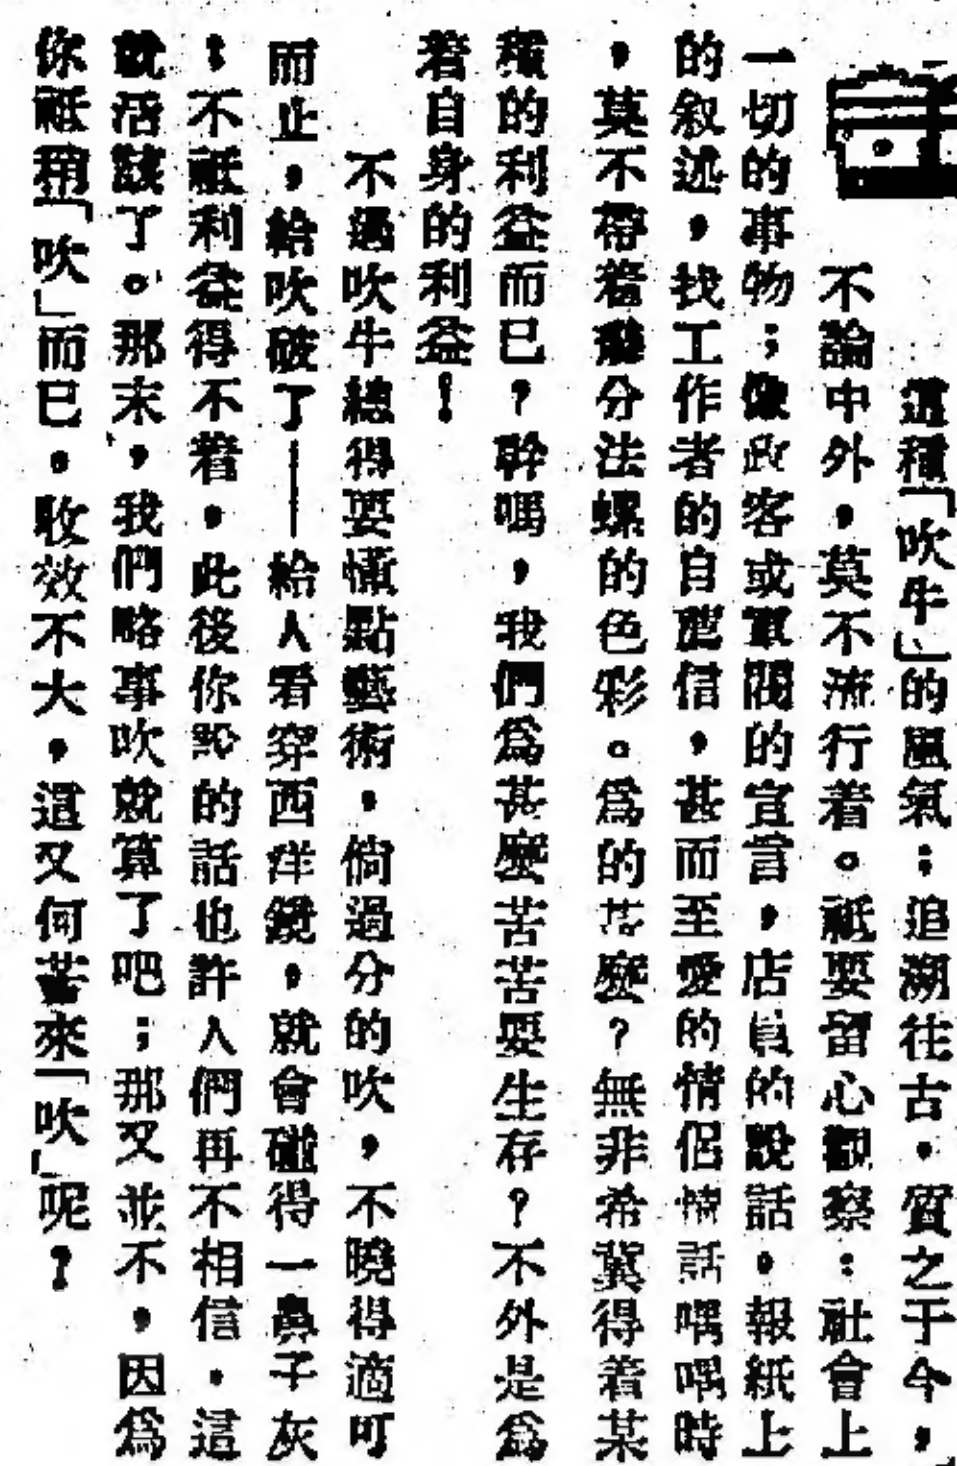 這種「吹牛」的風氣；追溯往古，質之于今，
不論中外，莫不流行着。祇要留心觀察：社會上
一切的事物；像政客或軍閥的宣言，店員的說話，報紙上
的叙述，找工作者的自薦信，甚而至愛的情侶情話喁喁時
，莫不帶着幾分法螺的色彩。爲的甚麼？無非希冀得着某
種的利益而已？幹嗎，我們爲甚麼苦苦要生存？不外是爲
着自身的利益！
不過吹牛總得要懂點藝術，倘過分的吹，不曉得適可
而止，給吹破了——給人看穿西洋鏡，就會碰得一鼻子灰
；不祇利益得不着，此後你的話也許人們再不相信，這
就活該了。那末，我們略事吹就算了吧；那又並不，因爲
你祇稍「吹」而已，收效不大，這又何苦來「吹」呢？